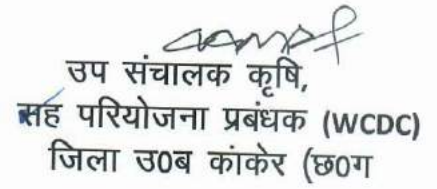 उप संचालक कृषि,
सह परियोजना प्रबंधक (WCDC)
जिला उ0ब कांकेर (छ0ग